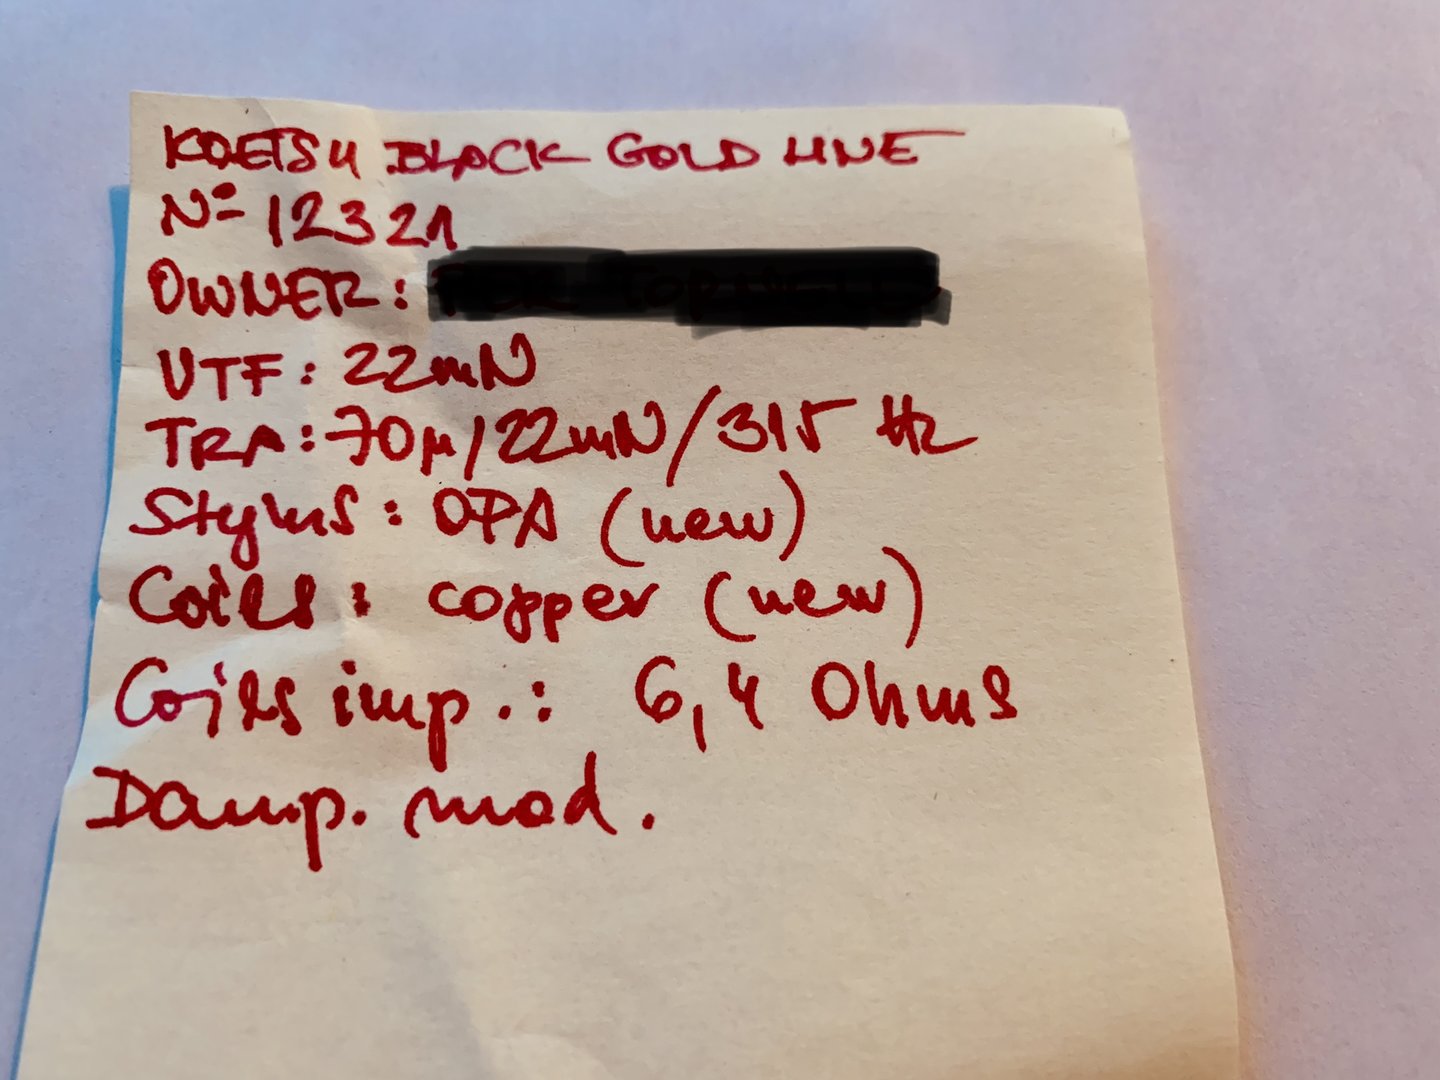 KOETSU BLACK GOLD LINE
Nº 12321
OWNER:
VTF: 22mN
TRA: 70μ/22mN/315 Hz
Stylus: OPA (new)
Coils: copper (new)
Coils imp.: 6,4 Ohms
Damp. mod.